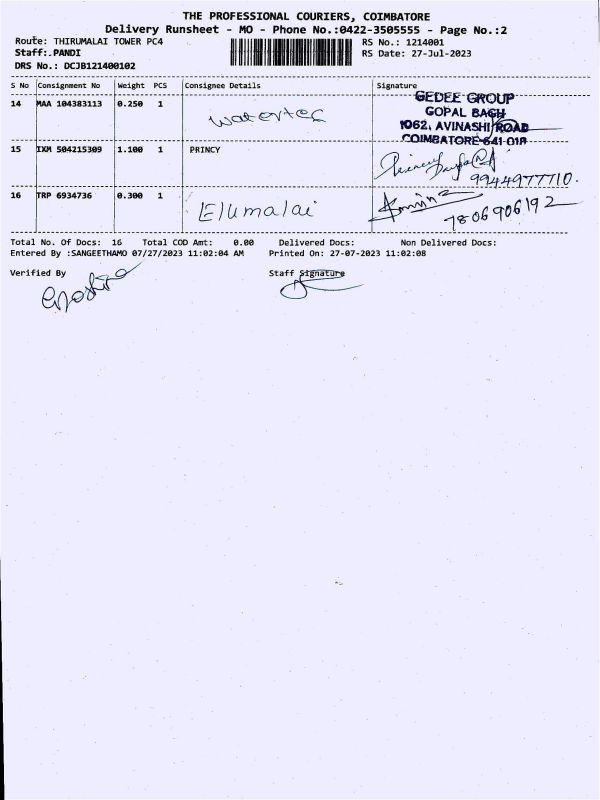 THE PROFESSIONAL COURIERS, COIMBATORE
Delivery Runsheet - MO - Phone No.:0422-3505555 - Page No.:2
Route: THIRUMALAI TOWER PC4
RS No.: 1214001
Staff:.PANDI
RS Date: 27-Jul-2023
DRS No.: DCJB121400102
S No Consignment No Weight PCS Consignee Details Signature
14 MAA 104383113 0.250 1 watertec
GEDEE GROUP
GOPAL BAGH
1062, AVINASHI ROAD
COIMBATORE-641 018
15 IXM 504215309 1.100 1 PRINCY
9944977710.
16 TRP 6934736 0.300 1 Elumalai
7806906192
Total No. Of Docs: 16 Total COD Amt: 0.00 Delivered Docs: Non Delivered Docs:
Entered By :SANGEETHAMO 07/27/2023 11:02:04 AM Printed On: 27-07-2023 11:02:08
Verified By Staff Signature